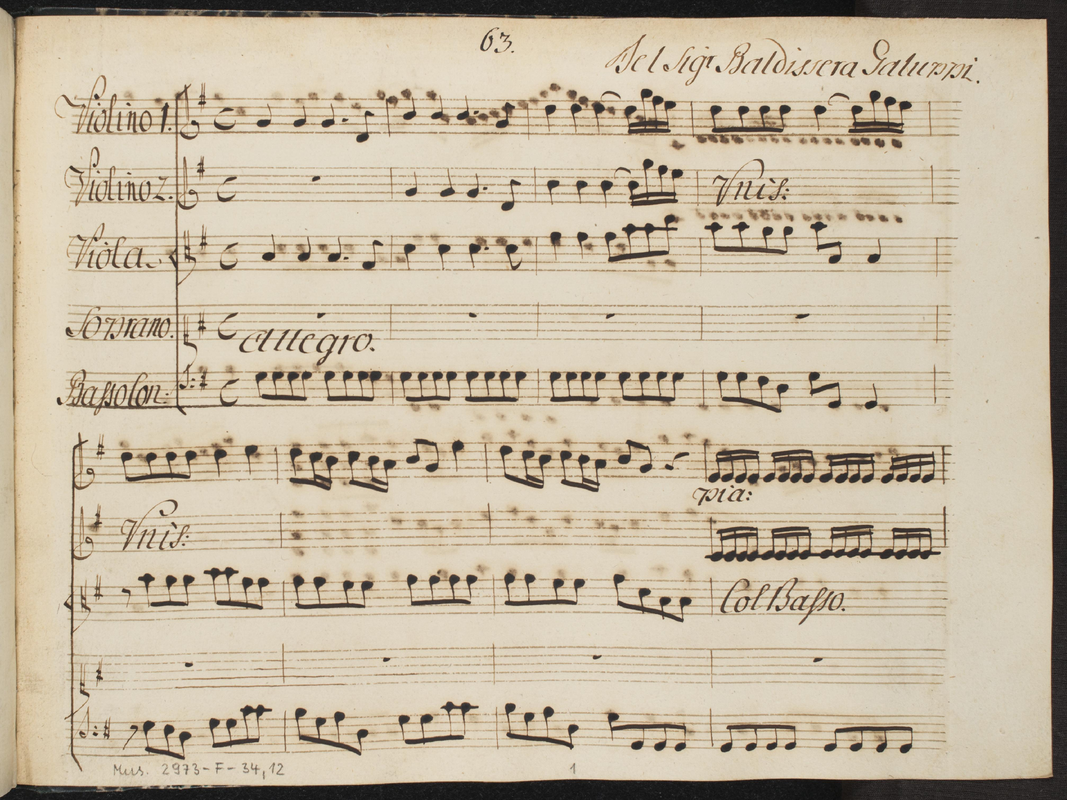 63.
Del Sigr Baldissera Galuppi.
Violino 1.
Violino 2.
Vnis:
Viola.
Soprano.
Allegro.
Basso Con:
pia:
Vnis:
Col Basso.
Mus. 2973-F-34,12
1